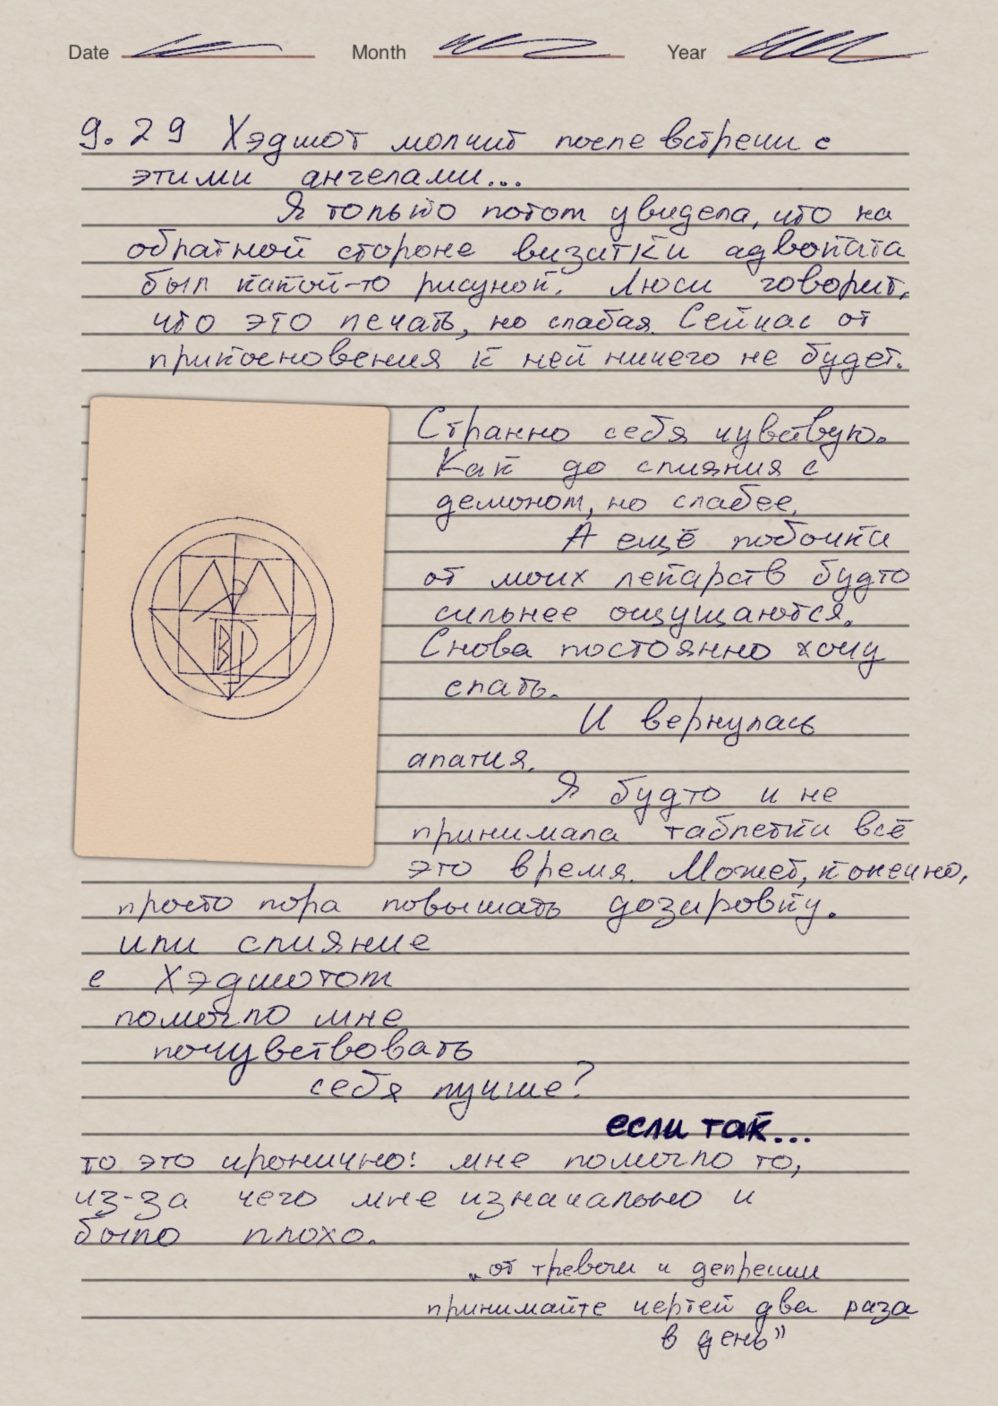 Date Month Year
9.29 Хэдшот молчит после встречи с
этими ангелами...
Я только потом увидела, что на
обратной стороне визитки адвоката
был какой-то рисунок. Люси говорит,
что это печать, но слабая. Сейчас от
прикосновения к ней ничего не будет.
Странно себя чувствую.
Как до слияния с
демоном, но слабее.
А ещё побочки
от моих лекарств будто
сильнее ощущаются.
Снова постоянно хочу
спать.
И вернулась
апатия.
Я будто и не
принимала таблетки всё
это время. Может, конечно,
просто пора повышать дозировку.
или слияние
с Хэдшотом
помогло мне
почувствовать
себя лучше?
если так...
то это иронично: мне помогло то,
из-за чего мне изначально и
было плохо.
„от тревоги и депрессии
принимайте чертей два раза
в день”